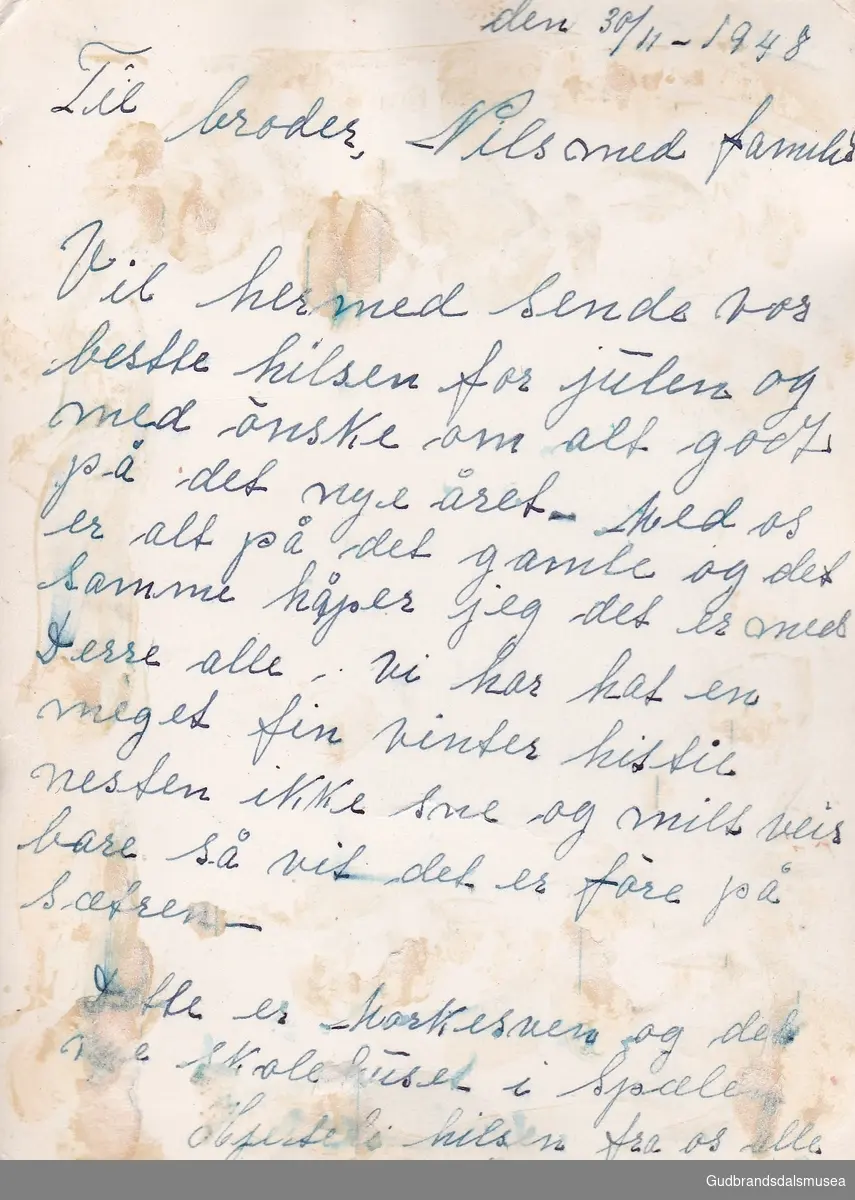 den 30/11-1948
Til
broder, Nils med familie
Vil hermed sende vor
bestte hilsen for julen og
med önske om alt godt
på det nye året - Med os
er alt på det gamle og det
samme håper jeg det er med
Derre alle - vi har hat en
meget fin vinter histil
nesten ikke sne og milt veir
bare så vit det er före på
sætren -
Dette er Morkesven og det
nye skolehuset i Spælen
Hjertelig hilsen fra os alle
Gudbrandsdalsmusea